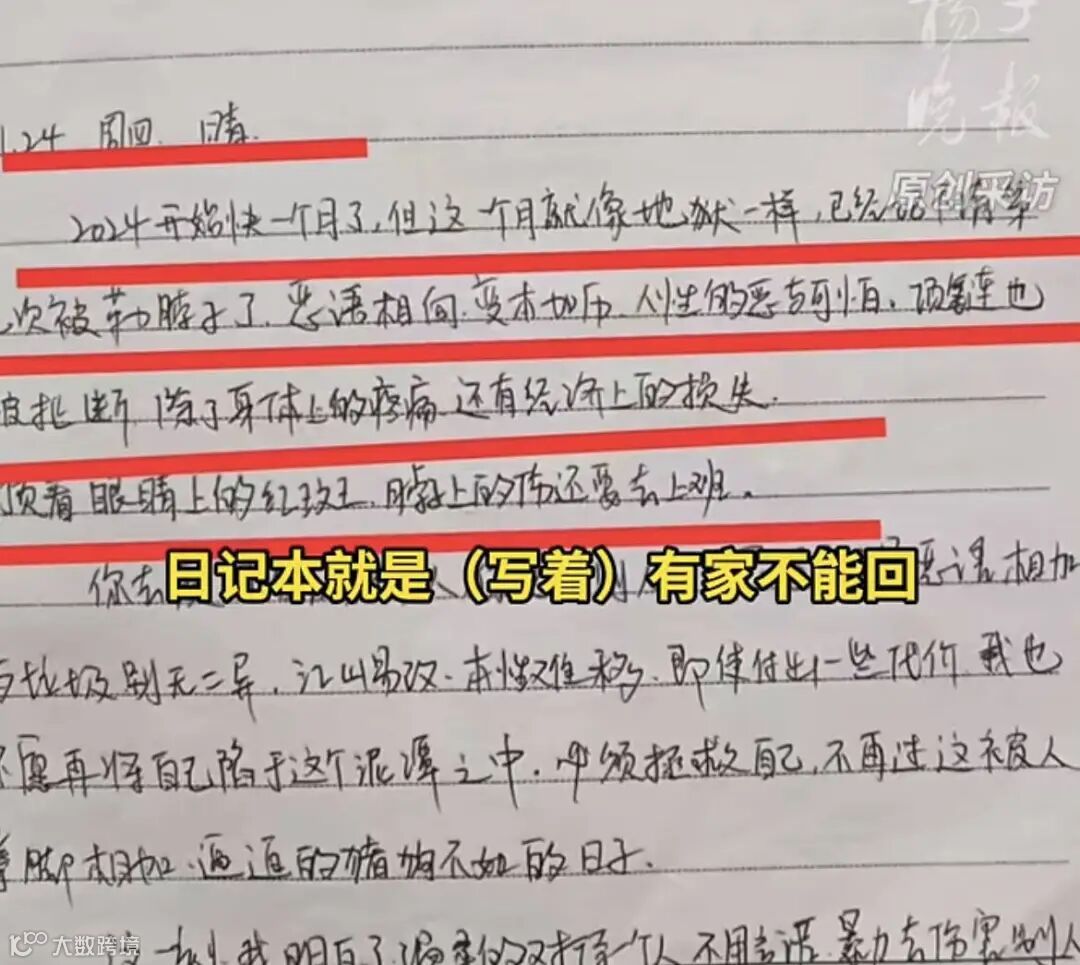 扬子
晚报
原创采访
1.24 周四 晴.
2024开始快一个月了,但这一个月就像地狱一样,已经
次被勒脖子了.恶语相向.变本加厉.人性的恶与可怕.项链也
被扯断 除了身体上的疼痛 还有经济上的损失.
顶着眼睛上的红斑.脖子上的伤还要去上班.
日记本就是（写着）有家不能回
你去 恶语相加
与垃圾别无二异.江山易改.本性难移.即使付出一些代价 我也
不愿再将自己陷于这个泥潭之中.必须拯救自己,不再过这被人
拳脚相加.逼迫的猪狗不如的日子.
我明白了 对待一个人 不用言语.暴力去伤害别人
大数跨境